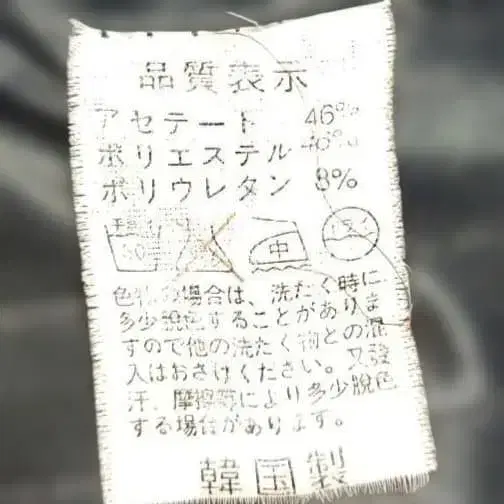 品質表示
アセテート 46%
ポリエステル 46%
ポリウレタン 8%
中
色物の場合は、洗たく時に
多少脱色することがありま
すので他の洗たく物との混
入はおさけください。又発
汗、摩擦等により多少脱色
する場合があります。
韓国製